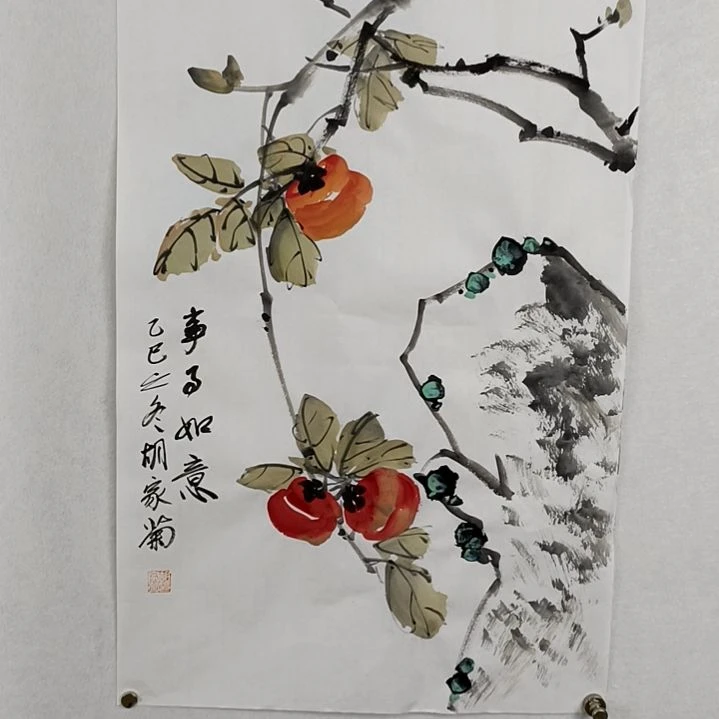 事事如意
乙巳之冬胡家菊